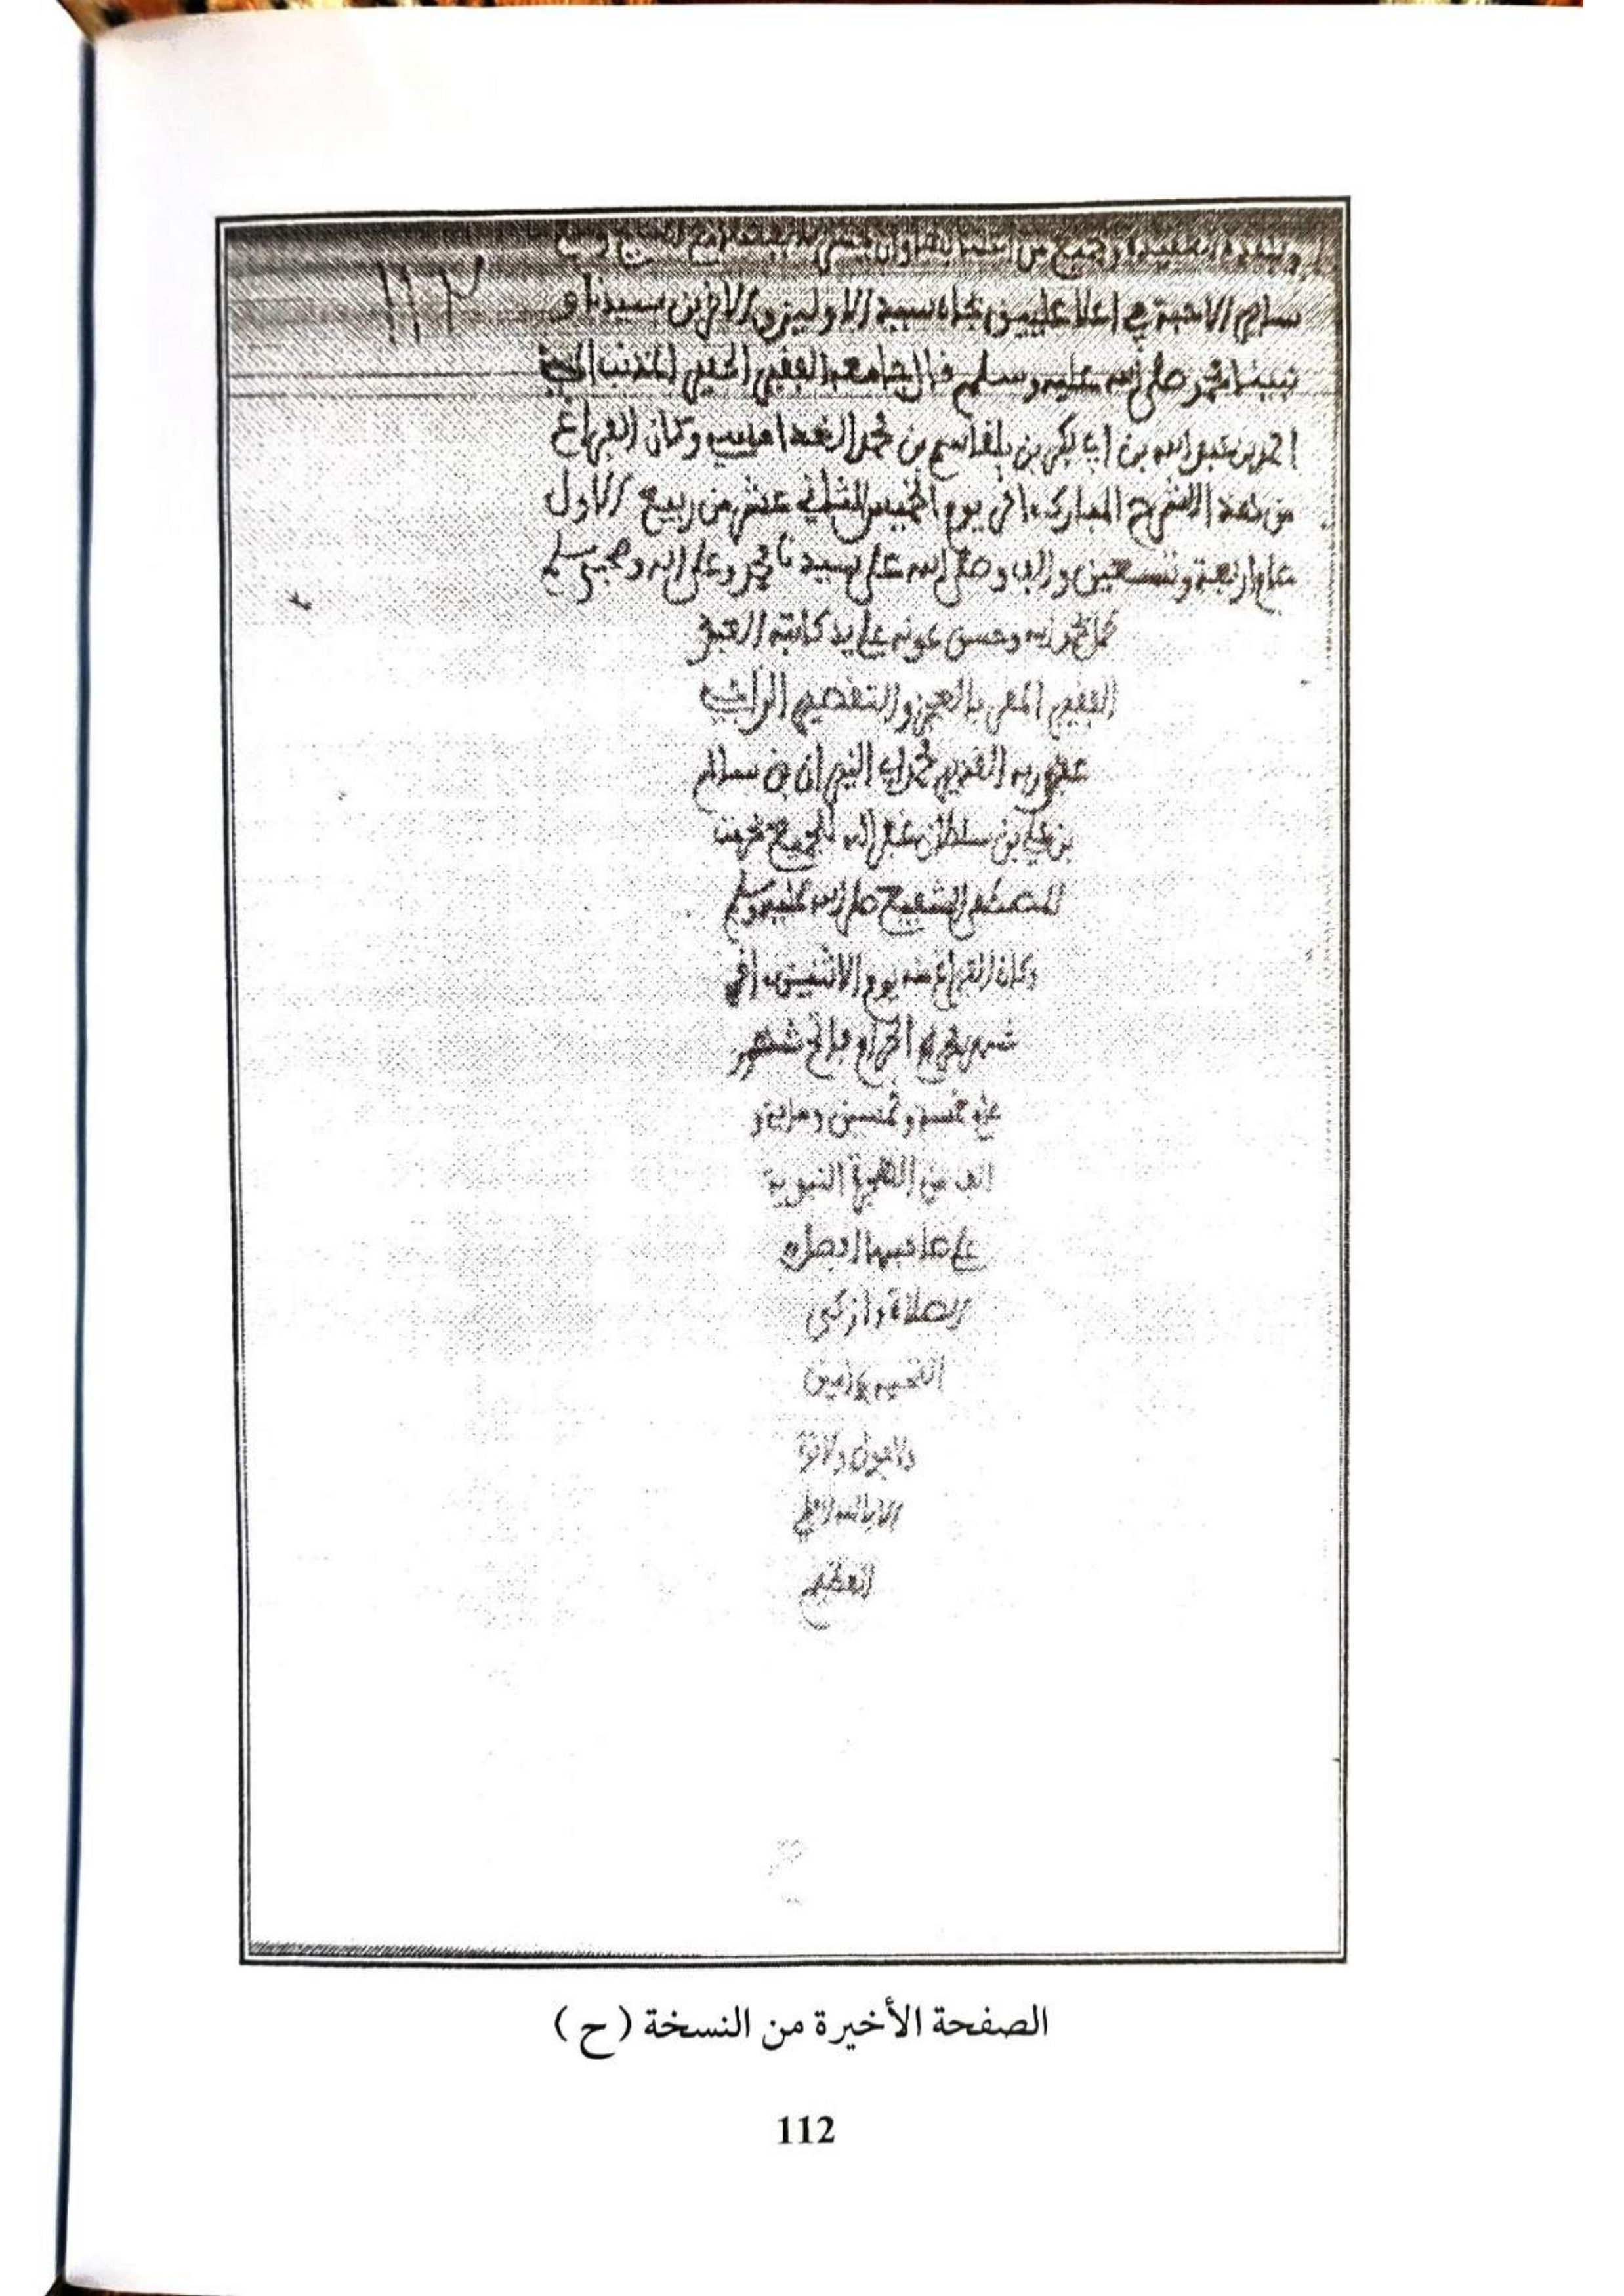 ١١٣
سائر الاحبة في اعلا عليين بجاه سيد الاولين والاخرين سيدنا و
نبينا محمد صلى الله عليه وسلم قال جامعه الفقير الحقير المذنب
احمد بن عبد الله بن ابي بكر بن بلقاسم بن محمد الغدامسي وكان الفراغ
من هذا الشرح المبارك اخر يوم الخميس الثاني عشر من ربيع الاول
عام اربعة وتسعين والف وصلى الله على سيدنا محمد وعلى اله وصحبه وسلم
كمل بحمد الله وحسن عونه على يد كاتبه العبد
الفقير المقر بالعجز والتقصير الراجي
عفو ربه القدير محمد بن سالم
بن علي بن سلطان غفر الله للجميع بحرمت
المصطفى الشفيع صلى الله عليه وسلم
وكان الفراغ منه يوم الاثنين اخر
شهر الحرام فاتح شهور
عام خمسة وخمسين ومائة و
الف من الهجرة النبوية
على صاحبها افضل
الصلاة وازكى
التحية امين
ولا حول ولا قوة
الا بالله العلي
العظيم
الصفحة الأخيرة من النسخة ( ح )
112